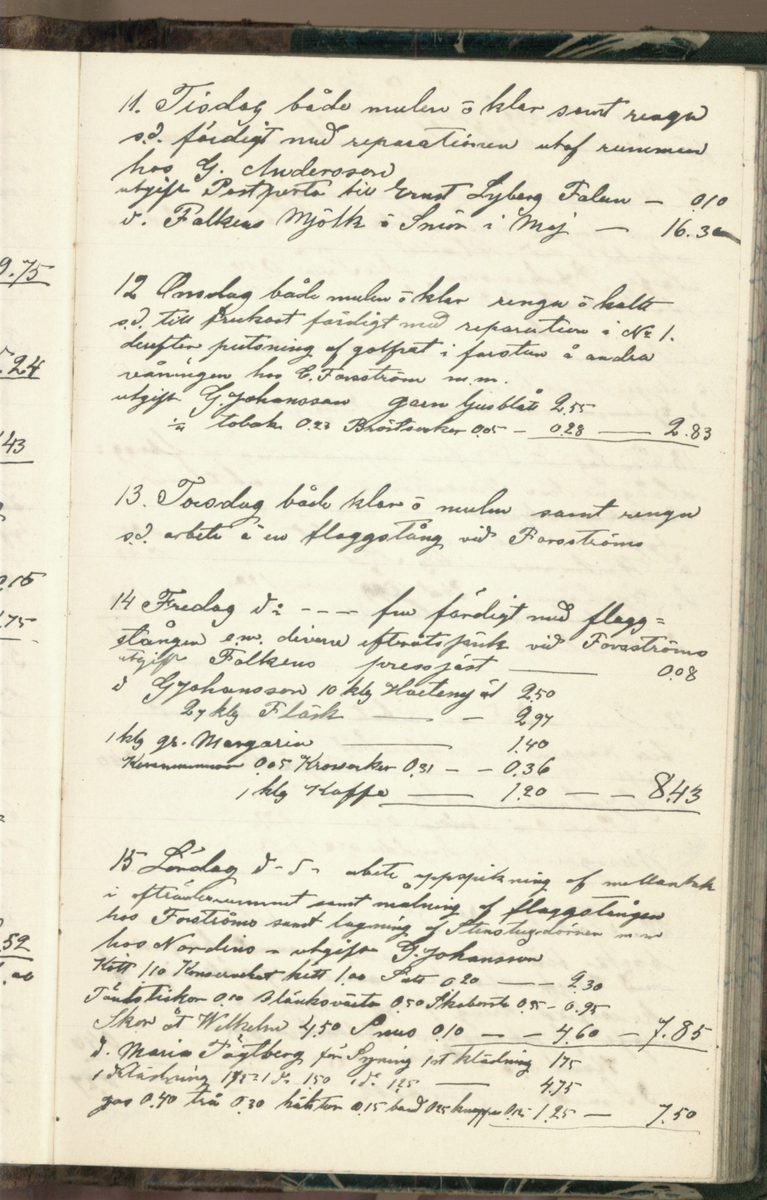 9.75
5.24
43
0.15
.75
.52
11. Tisdag både mulen ö klar samt rengn
s.d. färdigt med reparationen utaf rummen
hos G. Andersson
utgift Postporto till Ernst Lyberg Falun — 0.10
d. Falkens Mjölk ö Smör i Maj — 16.30
12 Onsdag både mulen ö klar rengn ö kallt
s.d. till frukost färdigt med reparation i No 1.
derefter putsning af golfrat i farstun å andra
våningen hos E. Forsström m.m.
utgift G. Johansson garn ljusblått 2.55
½ tobak 0.23 Bröstsocker 0.05 — 0.28 — 2.83
13. Torsdag både klar ö mulen samt rengn
s.d. arbete å en flaggstång vid Forsströms
14 Fredag d:o - - - fm färdigt med flagg=
stången e.m. diverse vid Forsströms
utgift Falkens pressjäst — 0.08
d G Johansson 10 klg 2.50
27 klg Fläsk — - 2.97
1 klg gr. Margarin — 1.40
0.05 Krossocker 0.31 - - 0.36
1 klg Kaffe — 1.20 — - 8.43
15 Lördag d - s - arbete uppspikning af
i samt målning af flaggstången
hos Forströms samt lagning af m m
hos Nordins - utgift G. Johansson
Kött 1.10 Konserverket kett 1.00 Salt 0.20 — 2.30
Tändstickor 0.10 Blanksvärta 0.50 Skoborste 0.35 - 0.95
Skor åt Wilhelm 4.50 Snus 0.10 — - 4.60 - 7.85
d. Maria Täglberg för Syning 1st klädning 1.75
1 Klädning 1.75 1 do 1.50 1 do 1.25 — 4.75
gas 0.40 trå 0.30 0.15 band 0.25 knappar 0.15 1.25 — 7.50